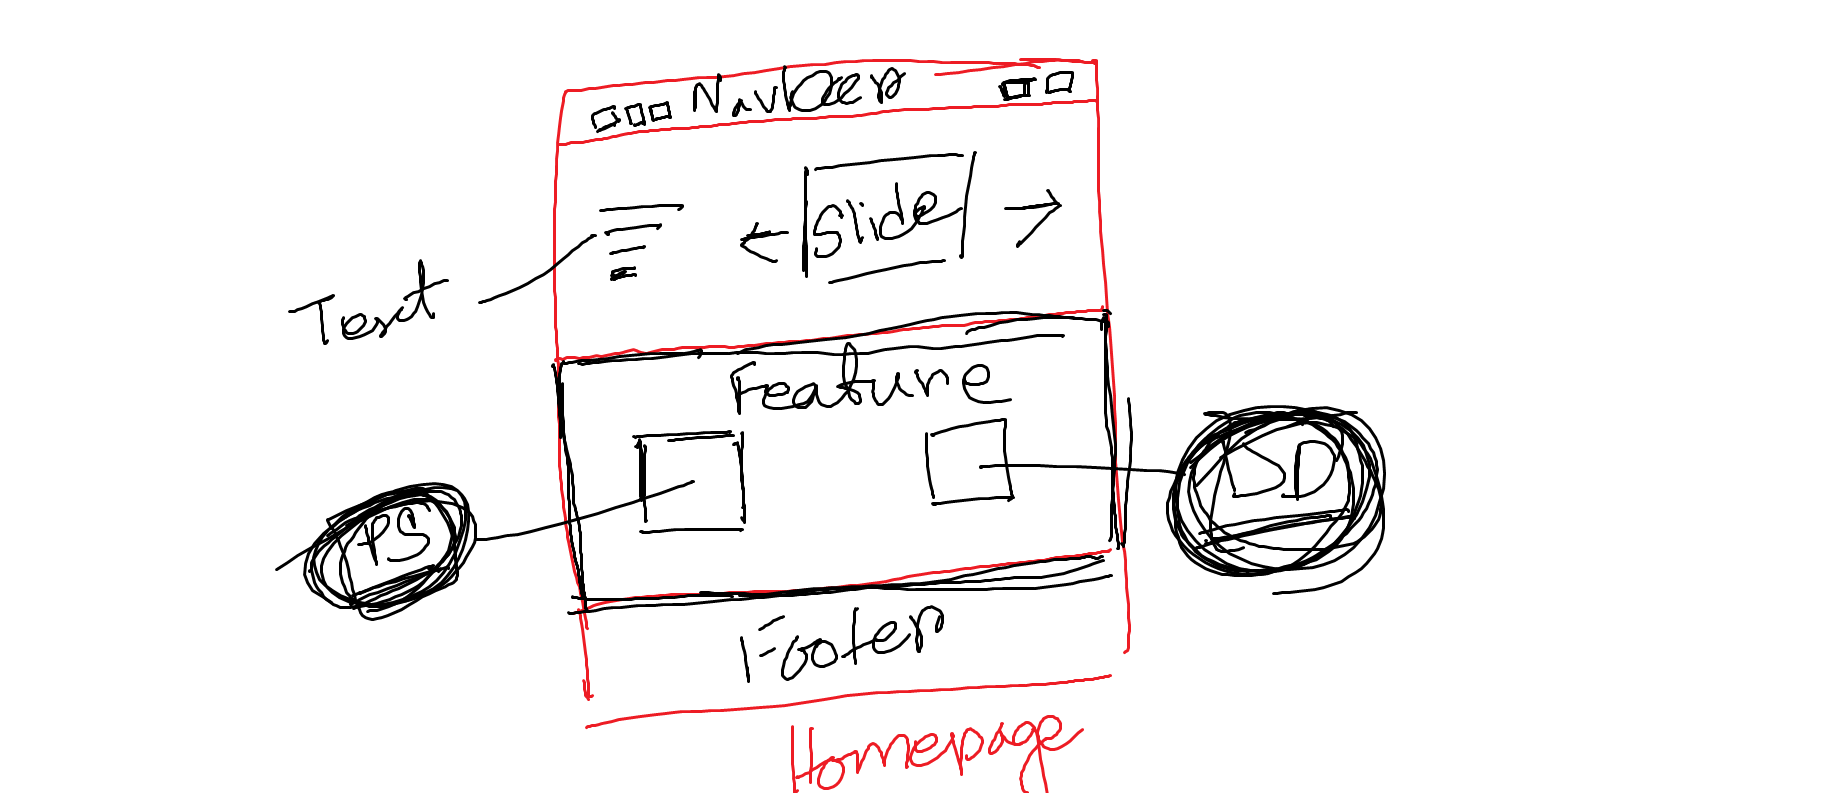 Navbar
Slide
Text
Feature
PS
DD
Footer
Homepage